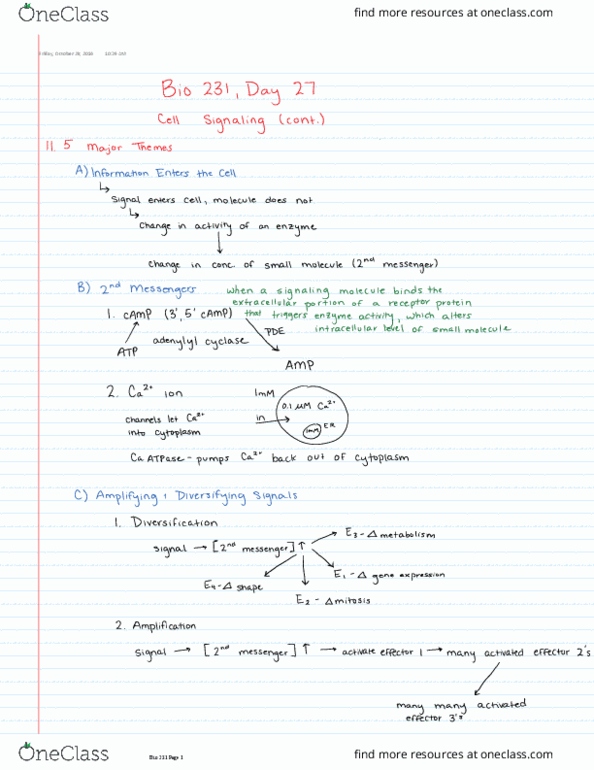 OneClass
find more resources at oneclass.com
Friday, October 28, 2016
Bio 231, Day 27
Cell Signaling (cont.)
II. 5 Major Themes
A) Information Enters the Cell
↳ Signal enters cell, molecule does not
↳ Change in activity of an enzyme
↓
change in conc. of small molecule (2nd messenger)
B) 2nd Messengers
when a signaling molecule binds the
extracellular portion of a receptor protein
that triggers enzyme activity, which alters
intracellular level of small molecule
1. cAMP (3', 5' cAMP)
PDE
adenylyl cyclase
ATP
AMP
2. Ca2+ ion
1mM
0.1 μM Ca2+
channels let Ca2+
into cytoplasm
in →
ER
1mM
Ca ATPase - pumps Ca2+ back out of cytoplasm
C) Amplifying & Diversifying Signals
1. Diversification
E3 - Δ metabolism
signal → [2nd messenger] ↑
E1 - Δ gene expression
E4 - Δ shape
E2 - Δ mitosis
2. Amplification
Signal → [2nd messenger] ↑ → activate effector 1 → many activated effector 2's
many many activated
effector 3's
OneClass
Bio 231 Page 1
find more resources at oneclass.com